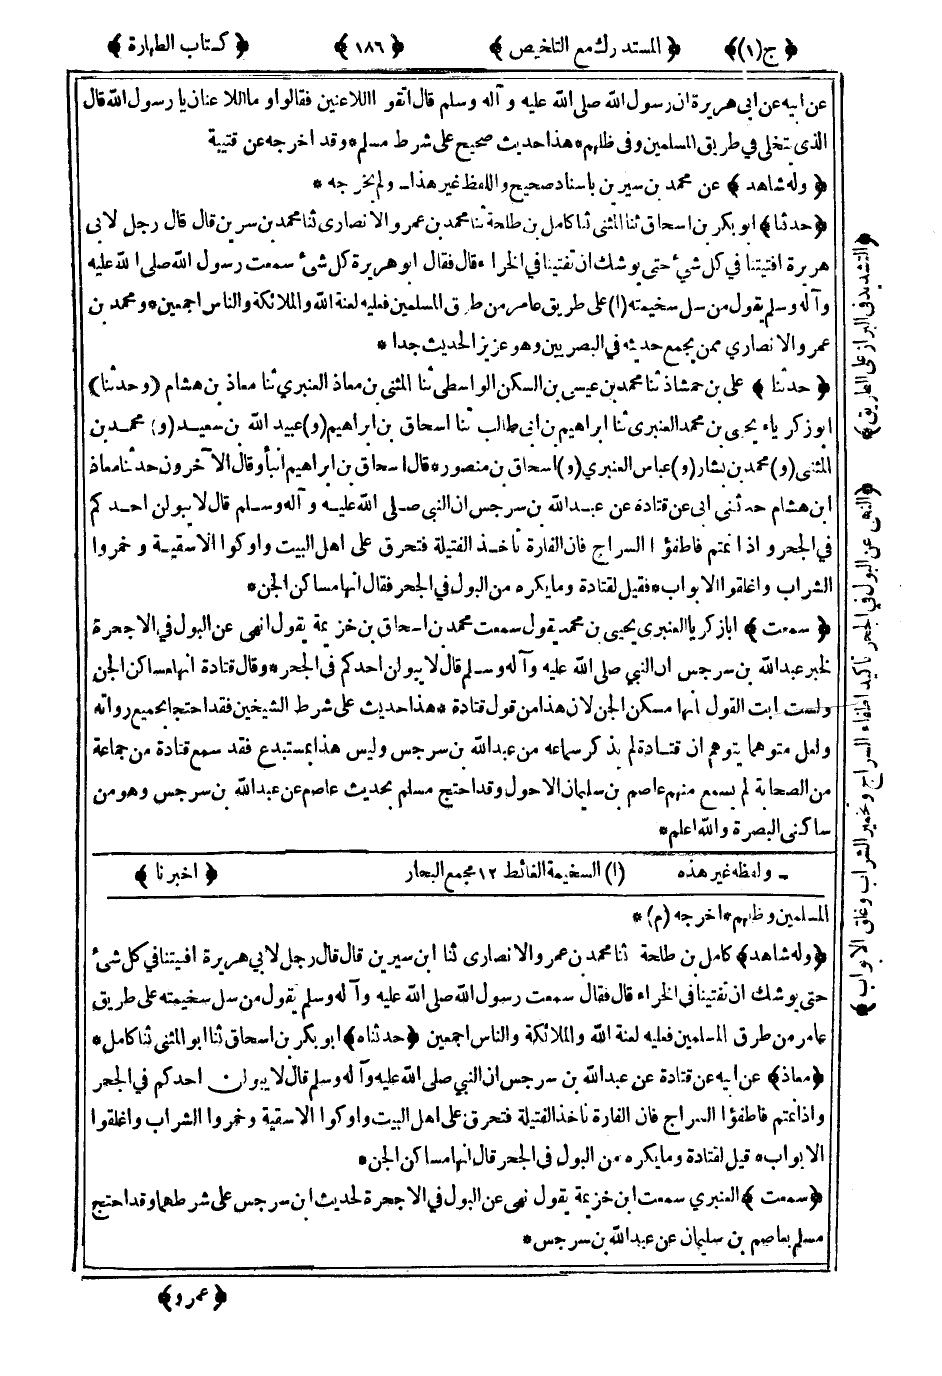 ﴿ ج (١) ﴾ ﴿ المستدرك مع التلخيص ﴾ ﴿ ١٨٦ ﴾ ﴿ كتاب الطهارة ﴾
عن ابيه عن ابى هريرة ان رسول الله صلى الله عليه وآله وسلم قال اتقوا اللاعنين فقالوا وما اللاعنان يا رسول الله قال
الذى يتخلى في طريق المسلمين وفى ظلهم * هذا حديث صحيح على شرط مسلم * وقد اخرجه عن قتيبة
﴿ وله شاهد ﴾ عن محمد بن سيرين باسناد صحيح واللفظ غير هذا ـ ولم يخرجه *
﴿ حدثنا ﴾ ابو بكر بن اسحاق ثنا المثنى ثنا كامل بن طلحة ثنا محمد بن عمرو الانصارى ثنا محمد بن سيرين قال قال رجل لابى
هريرة افتيتنا في كل شئ حتى يوشك ان تفتينا في الخراء قال فقال ابو هريرة كل شئ سمعت رسول الله صلى الله عليه
وآله وسلم يقول من سل سخيمته (١) على طريق عامر من طرق المسلمين فعليه لعنة الله والملائكة والناس اجمعين * ومحمد بن
عمرو الانصاري ممن يجمع حديثه في البصريين وهو عزيز الحديث جدا *
﴿ حدثنا ﴾ على بن حمشاذ ثنا محمد بن عيسى بن السكن الواسطى ثنا المثنى بن معاذ العنبري ثنا معاذ بن هشام (وحدثنا)
ابو زكرياء يحيى بن محمد العنبرى ثنا ابراهيم بن ابى طالب ثنا اسحاق بن ابراهيم (و) عبيد الله بن سعيد (و) محمد بن
المثنى (و) محمد بن بشار (و) عباس العنبري (و) اسحاق بن منصور * قال اسحاق بن ابراهيم انبأ وقال الآخرون حدثنا معاذ
ابن هشام حدثنى ابى عن قتادة عن عبد الله بن سرجس ان النبي صلى الله عليه وآله وسلم قال لا يبولن احدكم
في الجحر واذا نمتم فاطفؤا السراج فان الفارة تأخذ الفتيلة فتحرق على اهل البيت واوكوا الاسقية وخمروا
الشراب واغلقوا الابواب * فقيل لقتادة وما يكره من البول في الجحر فقال انها مساكن الجن *
﴿ سمعت ﴾ ابا زكريا العنبرى يحيى بن محمد يقول سمعت محمد بن اسحاق بن خزيمة يقول انهى عن البول في الاجحرة
لخبر عبد الله بن سرجس ان النبي صلى الله عليه وآله وسلم قال لا يبولن احدكم فى الجحر * وقال قتادة انها مساكن الجن
ولست ابت القول انها مسكن الجن لان هذا من قول قتادة * هذا حديث على شرط الشيخين فقد احتجا بجميع رواته
ولعل متوهما يتوهم ان قتادة لم يذكر سماعه من عبد الله بن سرجس وليس هذا بمستبدع فقد سمع قتادة من جماعة
من الصحابة لم يسمع منهم عاصم بن سليمان الاحول وقد احتج مسلم بحديث عاصم عن عبد الله بن سرجس وهو من
ساكنى البصرة والله اعلم *
ـ ولفظه غير هذه (١) السخيمة الغائط ١٢ مجمع البحار ﴿ اخبرنا ﴾
المسلمين وظلهم * اخرجه (م) *
﴿ وله شاهد ﴾ كامل بن طلحة ثنا محمد بن عمرو الانصارى ثنا ابن سيرين قال قال رجل لابي هريرة افتيتنا في كل شئ
حتى يوشك ان تفتينا في الخراء قال فقال سمعت رسول الله صلى الله عليه وآله وسلم يقول من سل سخيمته على طريق
عامر من طرق المسلمين فعليه لعنة الله والملائكة والناس اجمعين ﴿ حدثناه ﴾ ابو بكر بن اسحاق ثنا ابو المثنى ثنا كامل *
﴿ معاذ ﴾ عن ابيه عن قتادة عن عبد الله بن سرجس ان النبي صلى الله عليه وآله وسلم قال لا يبولن احدكم في الجحر
واذا نمتم فاطفؤا السراج فان الفارة تاخذ الفتيلة فتحرق على اهل البيت واوكوا الاسقية وخمروا الشراب واغلقوا
الابواب * قيل لقتادة وما يكره من البول في الجحر قال انها مساكن الجن *
﴿ سمعت ﴾ العنبري سمعت ابن خزيمة يقول نهى عن البول في الاجحرة لحديث ابن سرجس على شرطهما وقد احتج
مسلم بعاصم بن سليمان عن عبد الله بن سرجس *
﴿ عمرو ﴾
﴿ التشديد فى البراز على الطريق ﴾
﴿ النهى عن البول في الجحر تأكيد اطفاء السراج وتخمير الشراب وغلق الابواب ﴾